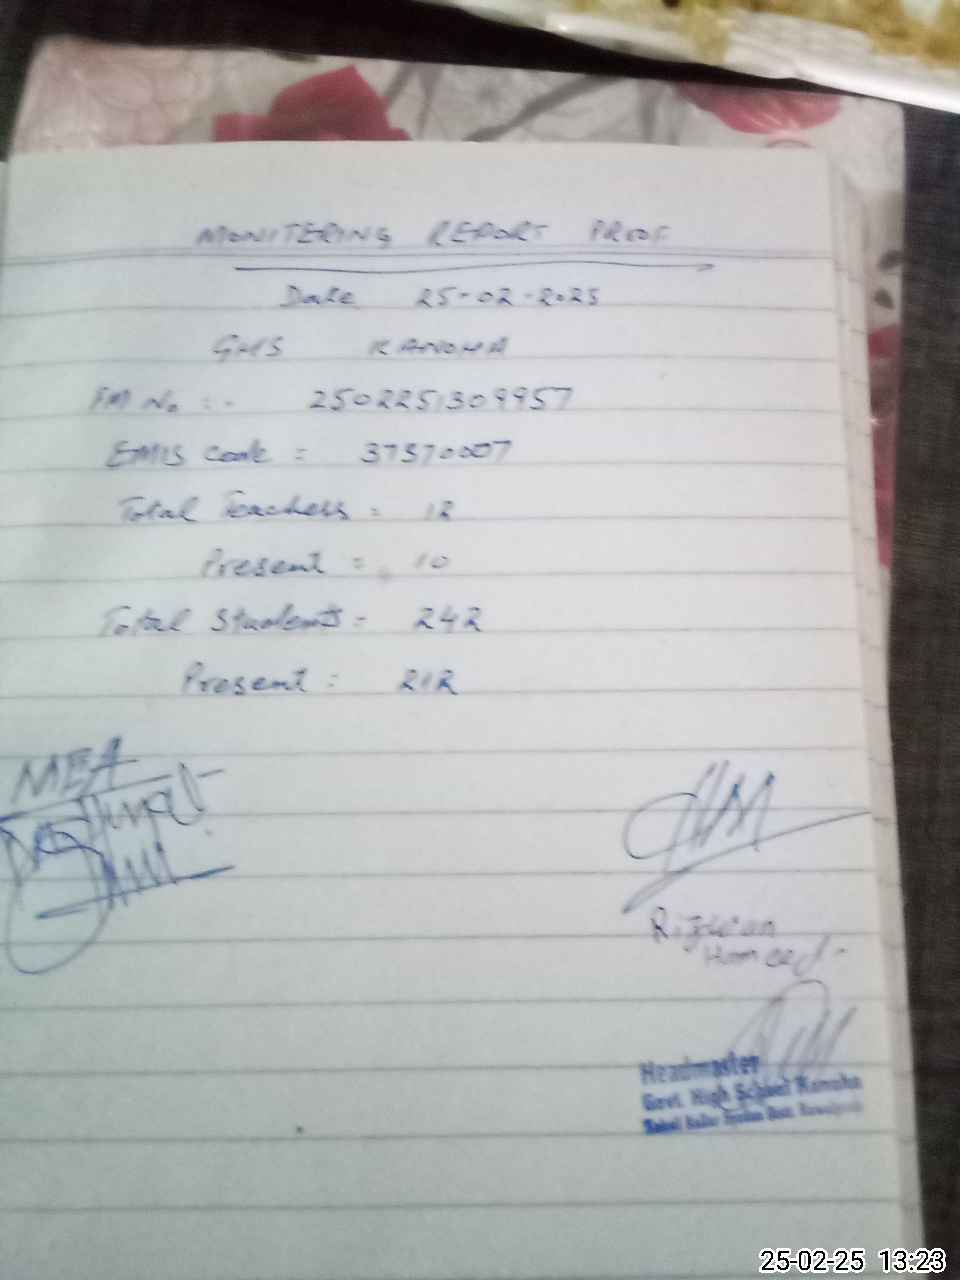 MONITERING REPORT PROOF
Date 25-02-2025
GHS KANOHA
FM No :- 2502251309957
EMIS code = 37370007
Total Teachers = 12
Present = 10
Total Students = 242
Present : 212
MEA
Rizwan
Hameed
Headmaster
Govt. High School Kanoha
25-02-25 13:23